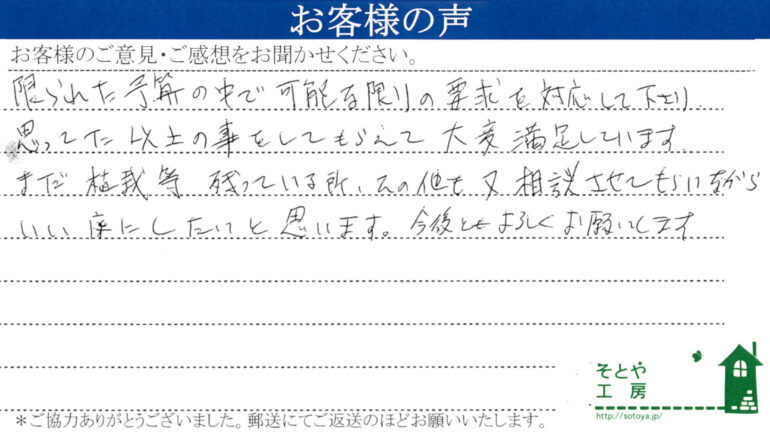 お客様の声
お客様のご意見・ご感想をお聞かせください。
限られた予算の中で可能な限りの要求を対応して下さり
思ってた以上の事をしてもらえて 大変満足しています
まだ植栽等 残っている所、その他も又相談させてもらいながら
いい庭にしたいと思います。今後ともよろしくお願いします
そとや
工房
http://sotoya.jp/
＊ご協力ありがとうございました。郵送にてご返送のほどお願いいたします。